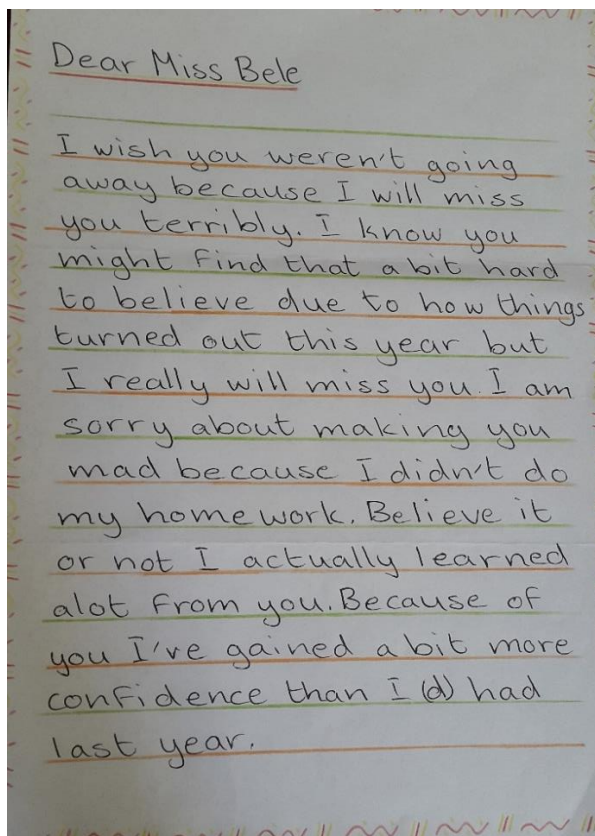 Dear Miss Bele
I wish you weren't going
away because I will miss
you terribly. I know you
might find that a bit hard
to believe due to how things
turned out this year but
I really will miss you. I am
sorry about making you
mad because I didn't do
my homework. Believe it
or not I actually learned
alot from you. Because of
you I've gained a bit more
confidence than I (d) had
last year.